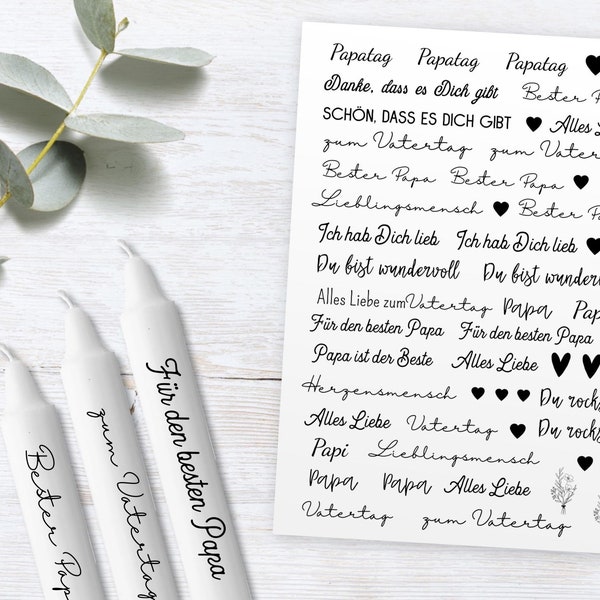 Papatag Papatag Papatag
Danke, dass es Dich gibt Bester
SCHÖN, DASS ES DICH GIBT Alles
zum Vatertag zum
Bester Papa Bester Papa
Lieblingsmensch Bester
Ich hab Dich lieb Ich hab Dich lieb
Du bist wundervoll Du bist
Alles Liebe zum Vatertag Papa
Für den besten Papa Für den besten Papa
Papa ist der Beste Alles Liebe
Herzensmensch Du
Alles Liebe Vatertag Du
Papi Lieblingsmensch
Papa Papa Alles Liebe
Vatertag zum Vatertag
Bester
zum Vatertag
Für den besten Papa